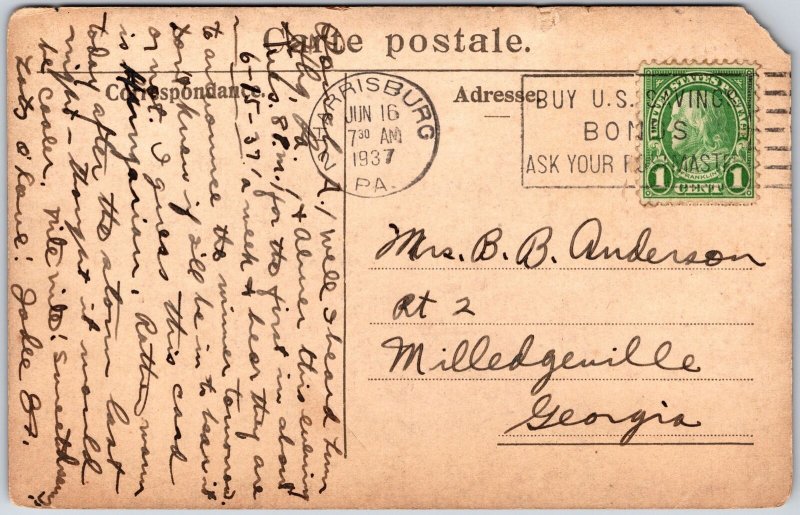 Carte postale.
Correspondance.
Adresse
HARRISBURG
JUN 16
7 30 AM
1937
PA.
BUY U.S. SAVINGS
BONDS
ASK YOUR POSTMASTER
UNITED STATES POSTAGE
FRANKLIN
1 CENT 1
Mrs. B. B. Anderson
Rt 2
Milledgeville
Georgia
6-15-37
/ Well I heard Lum
& Abner this evening
8 P.M. for the first in about
a week & hear they are
to announce the winner tomorrow.
Don't know if I'll be in to hear it
or not. I guess this card
is Hungarian. Rather warm
today after the storm last
night - thought it would
be cooler. Nite nite! Sweet dreams